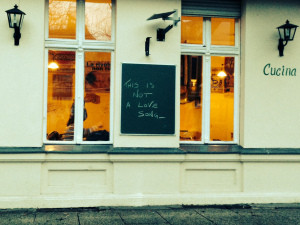 Cucina
THIS IS
NOT
A LOVE
SONG_